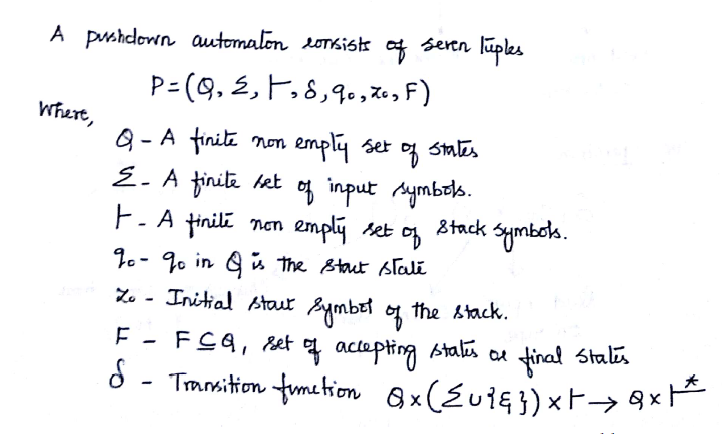 A pushdown automaton consists of seven tuples
P = (Q, Σ, Γ, δ, q₀, z₀, F)
Where,
Q - A finite non empty set of states
Σ - A finite set of input symbols.
Γ - A finite non empty set of stack symbols.
q₀ - q₀ in Q is the start state
z₀ - Initial start symbol of the stack.
F - F ⊆ Q, set of accepting states or final states
δ - Transition function Q × (Σ ∪ {ε}) × Γ → Q × Γ*